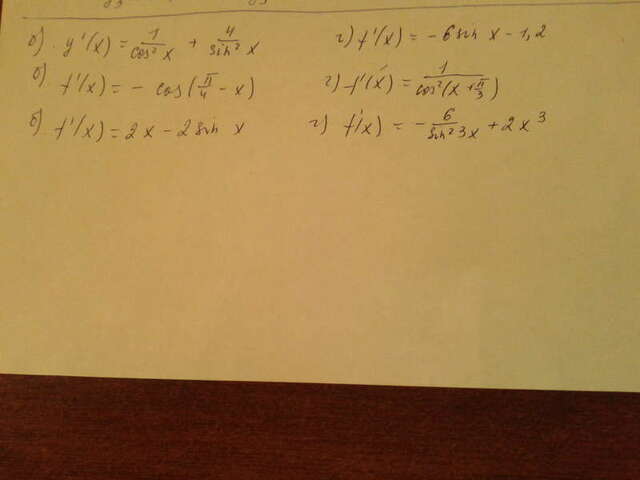 б). y'(x) = 1/cos² x + 4/sin² x
г) f'(x) = - 6 sin x - 1,2
б). f'(x) = - cos(π/4 - x)
г) f'(x) = 1/cos²(x + π/3)
б). f'(x) = 2x - 2 sin x
г) f'(x) = - 6/sin² 3x + 2x³